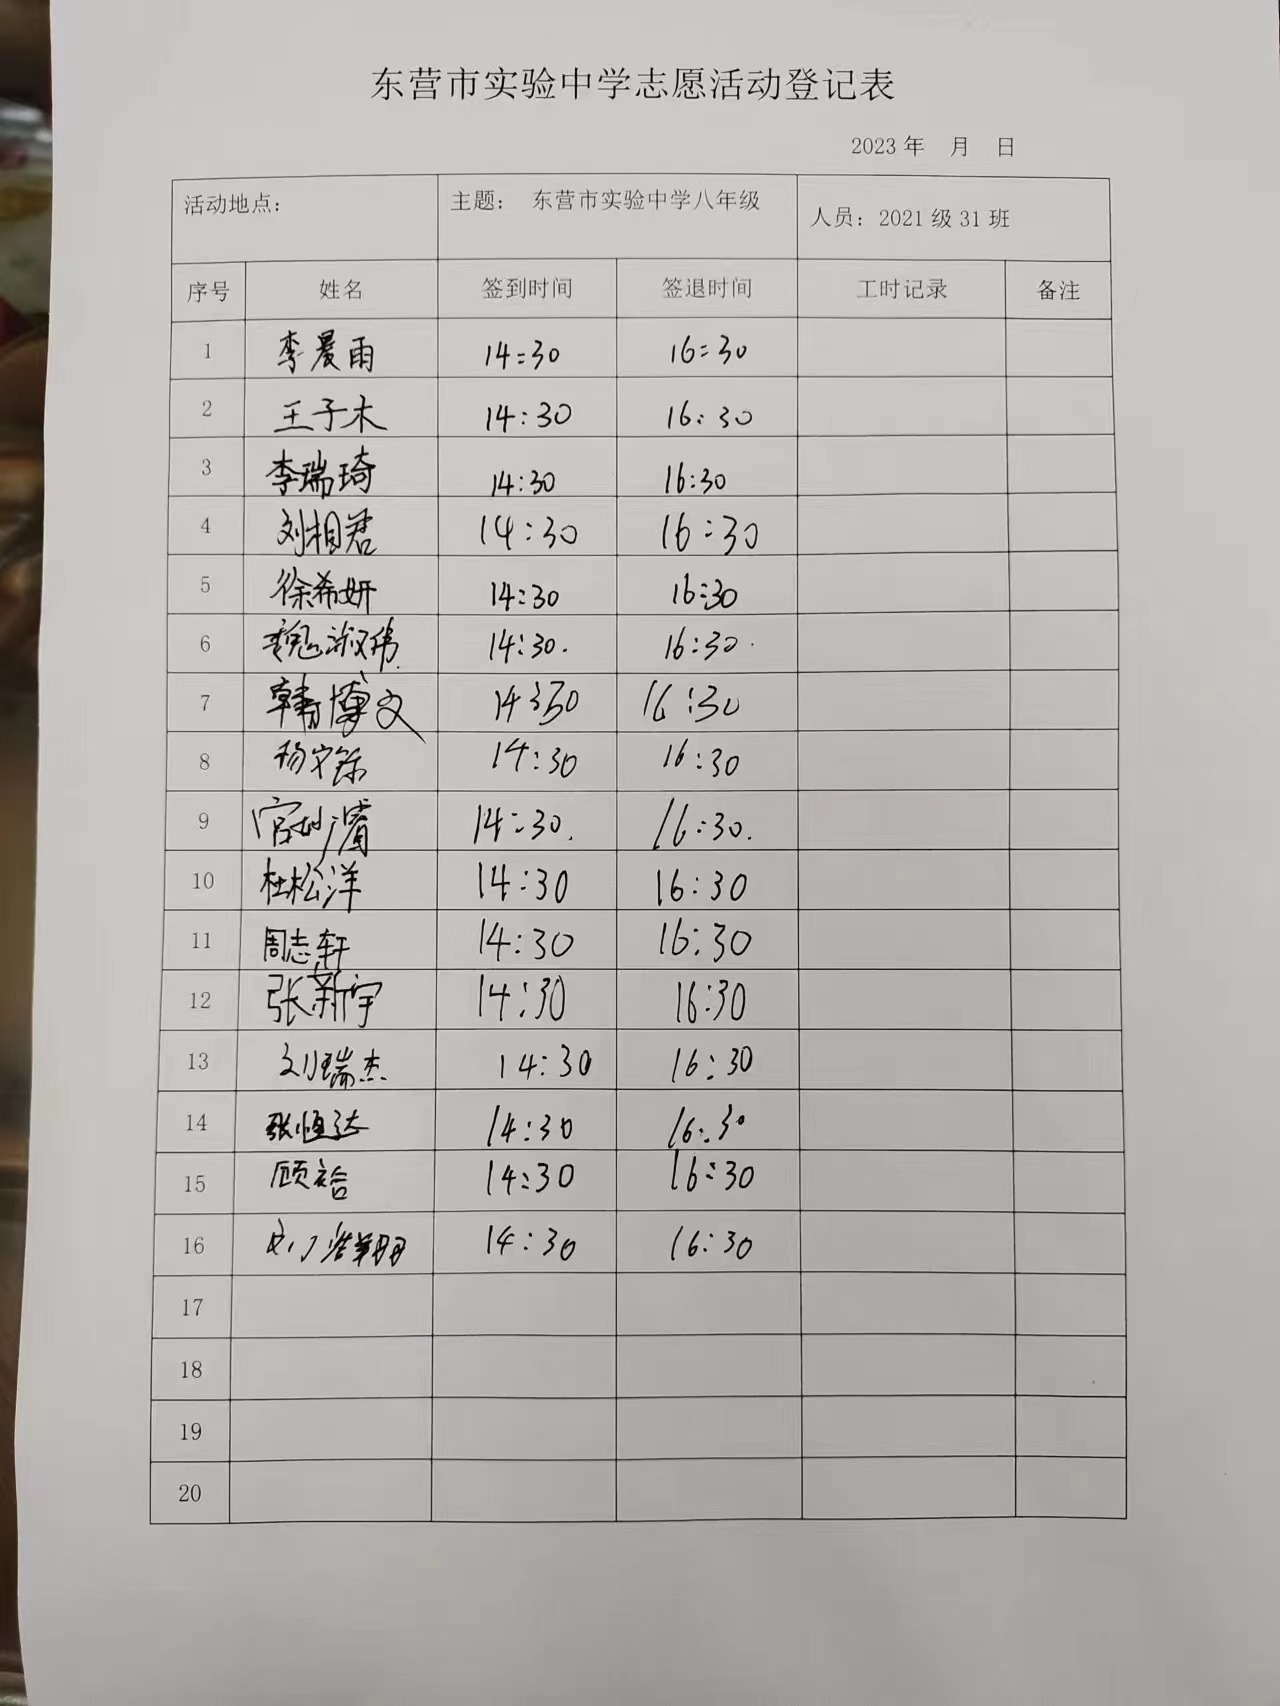 东营市实验中学志愿活动登记表
2023 年 月 日
活动地点： 主题： 东营市实验中学八年级 人员：2021 级 31 班
序号 姓名 签到时间 签退时间 工时记录 备注
1 李晨雨 14:30 16:30
2 王子木 14:30 16:30
3 李瑞琦 14:30 16:30
4 刘相君 14:30 16:30
5 徐希妍 14:30 16:30
6 魏淑伟 14:30. 16:30.
7 韩博文 14:30 16:30
8 14:30 16:30
9 14:30. 16:30.
10 杜松洋 14:30 16:30
11 周志轩 14:30 16:30
12 张新宇 14:30 16:30
13 刘瑞杰 14:30 16:30
14 张恒达 14:30 16:30
15 顾裕 14:30 16:30
16 14:30 16:30
17
18
19
20